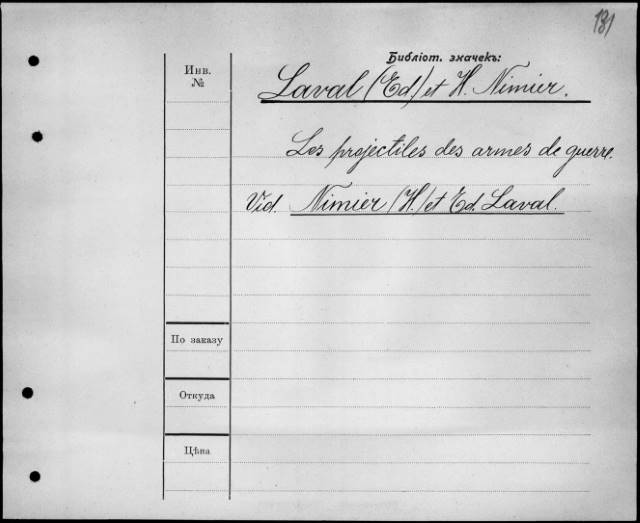 131
Библіот. значекъ:
Инв.
№
Laval (Ed) et H. Nimier.
Les projectiles des armes de guerre.
Vid. Nimier (H.) et Ed. Laval.
По заказу
Откуда
Цѣна